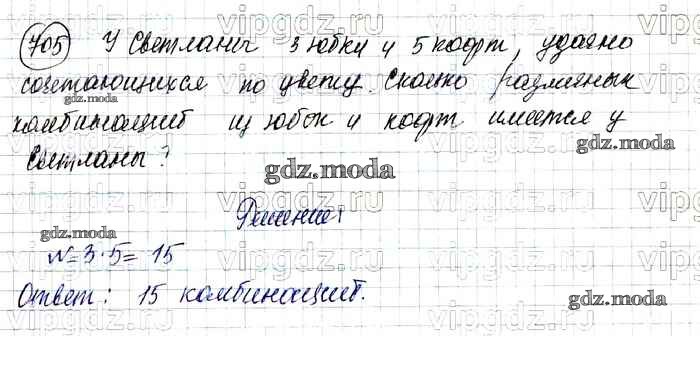 705 У Светланы 3 юбки и 5 кофт, удачно
сочетающихся по цвету. Сколько различных
комбинаций из юбок и кофт имеется у
Светланы?
Решение:
N=3·5= 15
Ответ: 15 комбинаций.
gdz.moda
gdz.moda
gdz.moda
gdz.moda
gdz.moda
vipgdz.ru